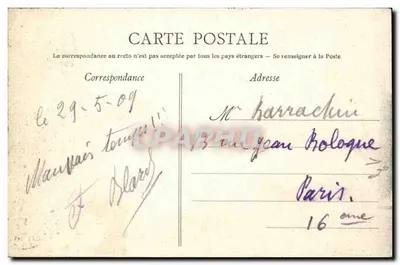 CARTE POSTALE
La correspondance au recto n'est pas acceptée par tous les pays étrangers — Se renseigner à la Poste
Correspondance
Adresse
le 29-5-09
Mauvais temps !!!
Mr Barrachin
13 rue Jean Bologne
Paris.
16 eme